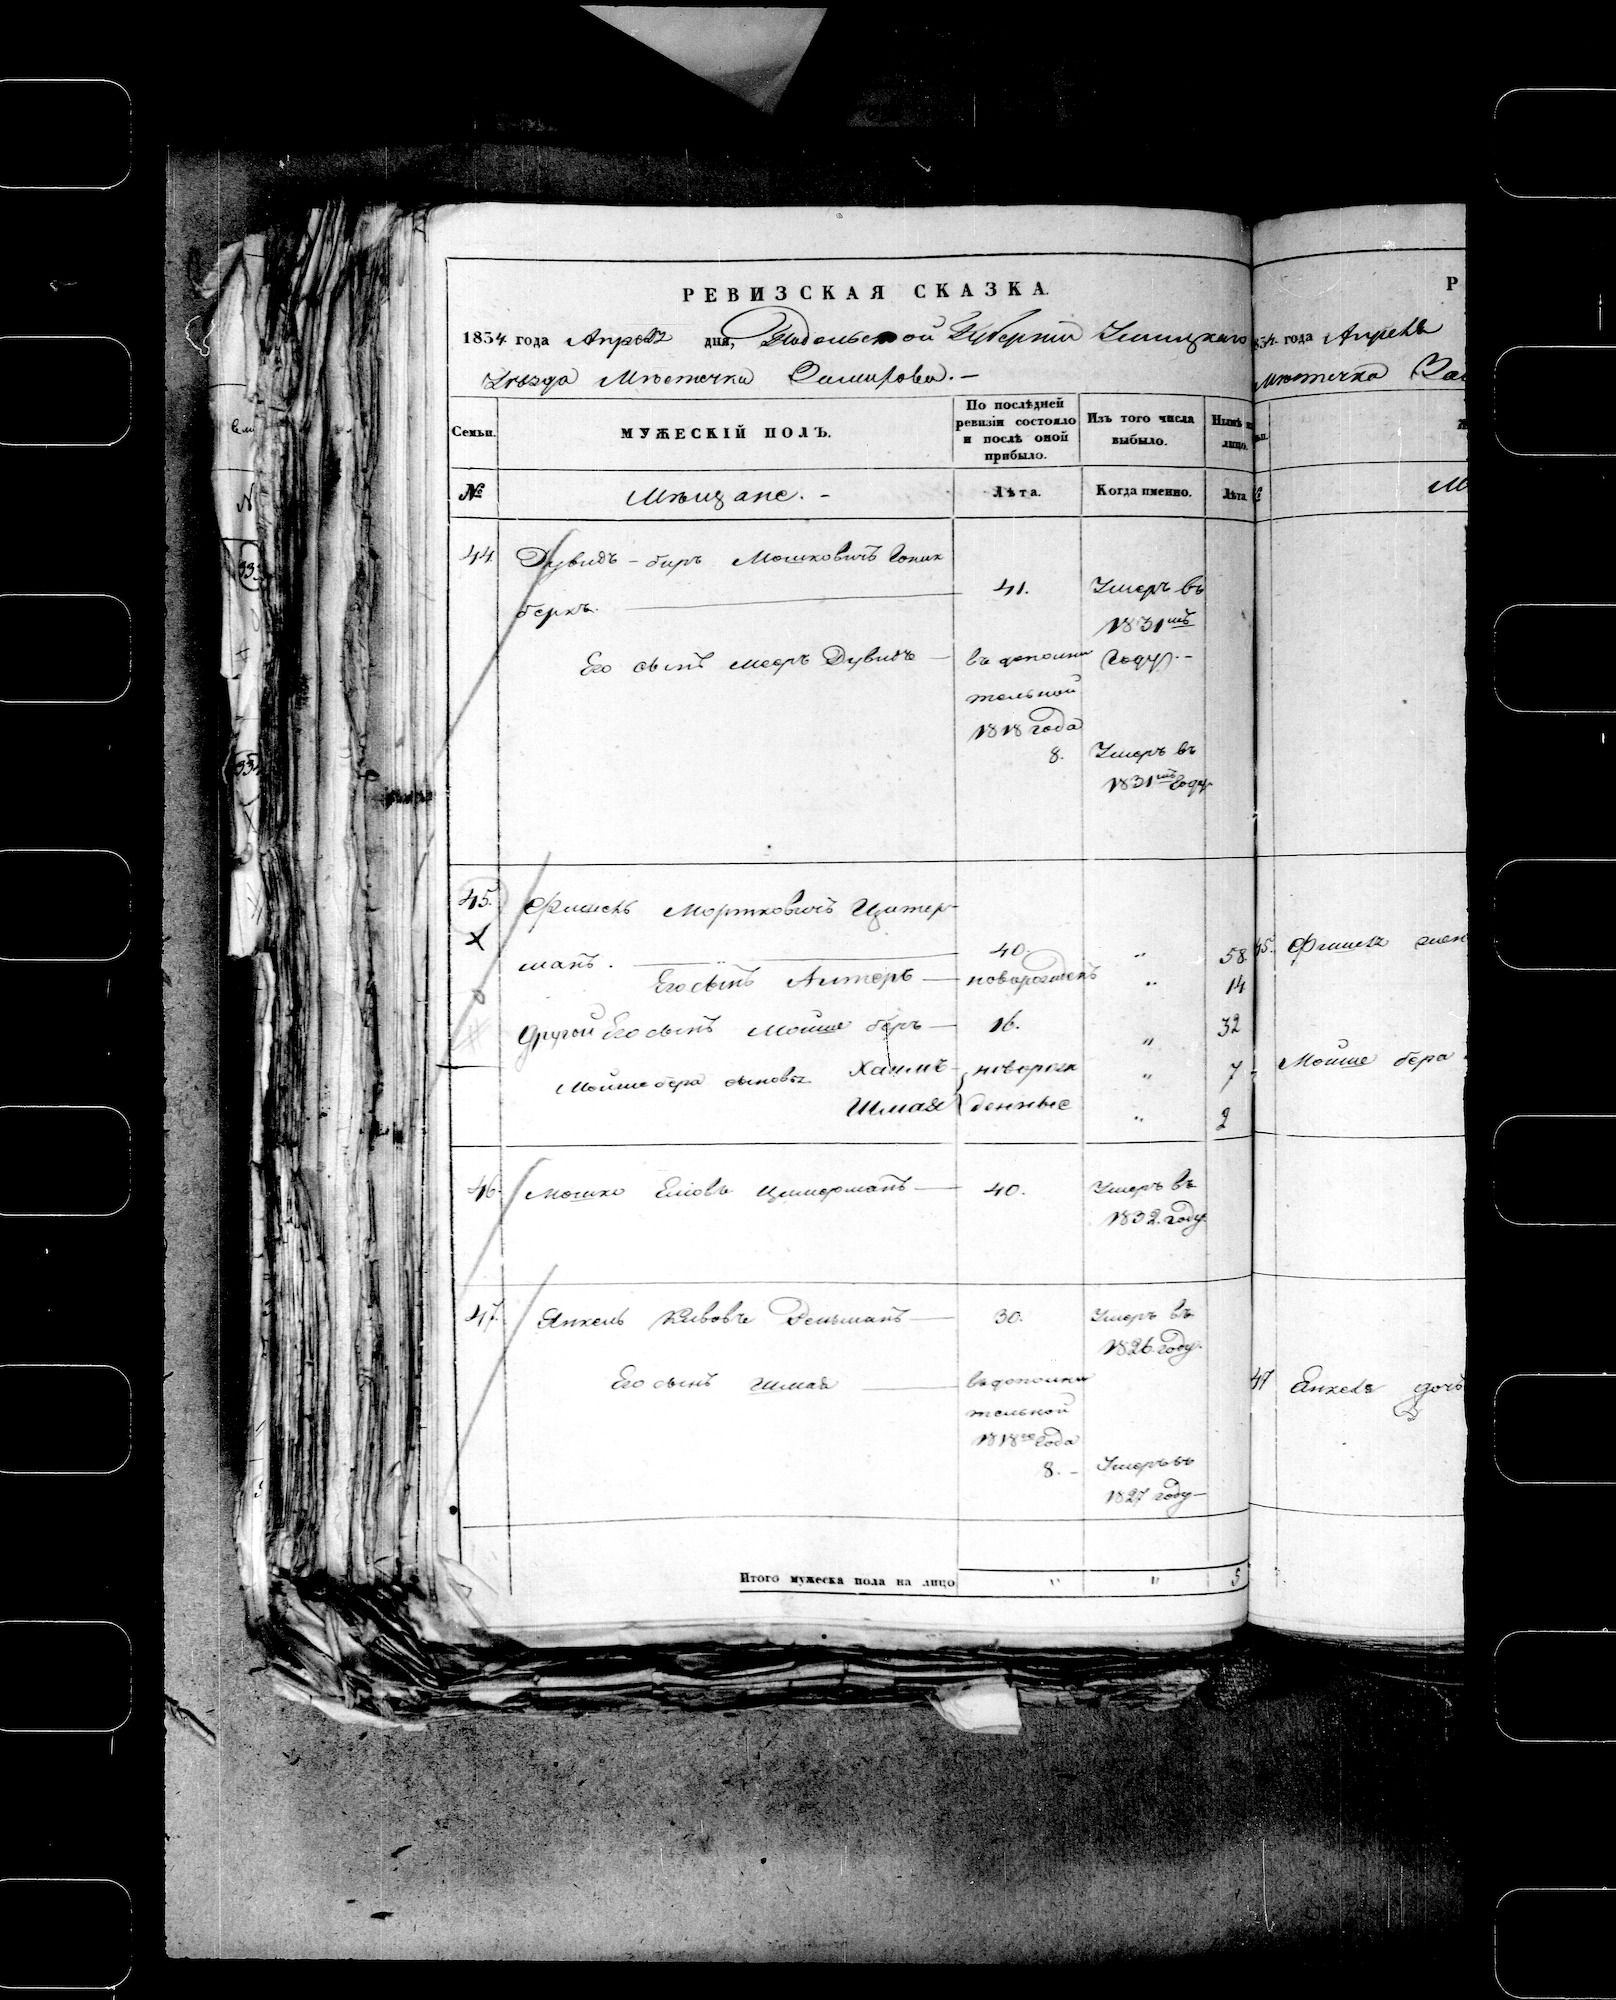 РЕВИЗСКАЯ СКАЗКА.
1834 года Апреля дня, Подольской Губернии Ушицкаго
Уезда Местечка Замихова. –
Семьи.
МУЖЕСКІЙ ПОЛЪ.
По послѣдней
ревизіи состояло
и послѣ оной
прибыло.
Изъ того числа
выбыло.
Нынѣ на
лицо.
№
Мѣщане. –
Лѣта.
Когда именно.
Лѣта.
44
Дувидъ - беръ Мошковичъ
беркъ.
41.
Умеръ въ
1831мъ
Году. –
Его сынъ Мееръ Дувидъ
въ дополни
тельной
1818 года
8.
Умеръ въ
1831мъ Году
45.
Фишель Мортковичъ Цимер
манъ.
40
"
58
Его сынъ Алтеръ
новорожденъ
"
14
Другой Его сынъ Мойше беръ
16.
"
32
Мойше бера сыновья
Хаимъ
новорож
"
7
Шмая
денные
"
2
46.
Мошко Цимерманъ
40.
Умеръ въ
1832. году
47.
Янкель
30.
Умеръ въ
1826. году.
Его сынъ Шмая
въ дополни
тельной
1818го Года
8. –
Умеръ въ
1827 году –
Итого мужеска пола на лицо
"
"
5
Р
34. года Апреля
Местечка За
45. Фишеля жен
Мойше бера
47 Янкеля дочь